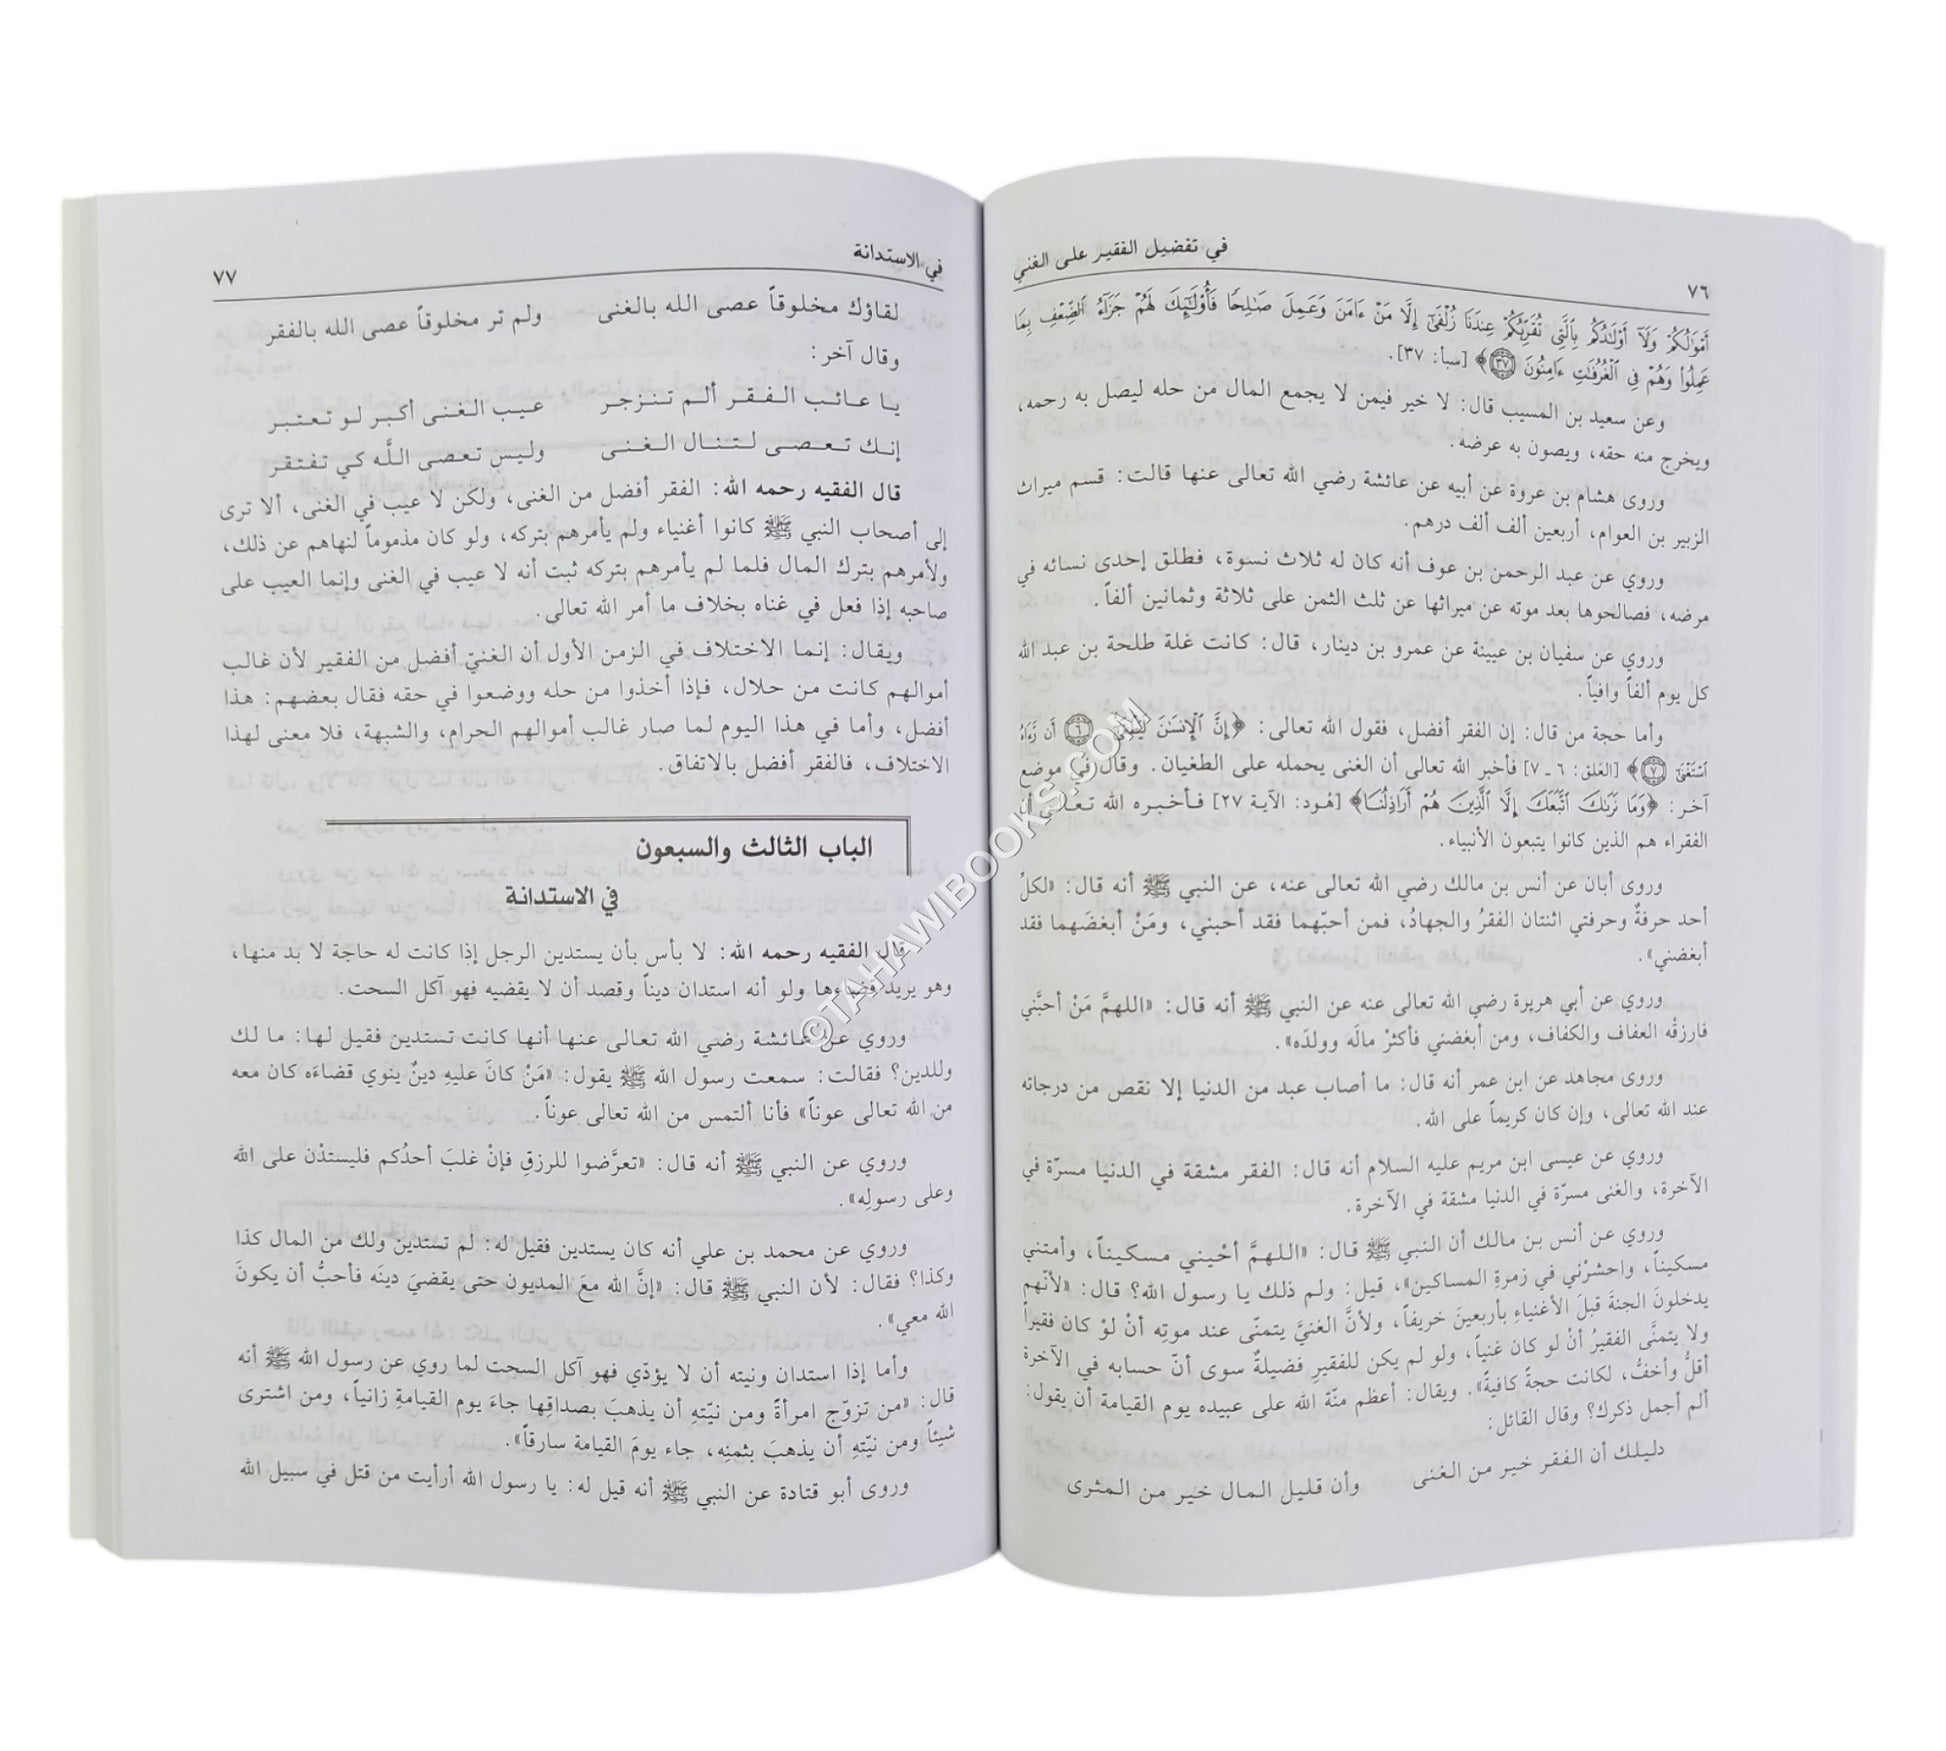 ٧٦
في تفضيل الفقير على الغني
أَمْوَٰلُكُمْ وَلَآ أَوْلَٰدُكُم بِٱلَّتِى تُقَرِّبُكُمْ عِندَنَا زُلْفَىٰٓ إِلَّا مَنْ ءَامَنَ وَعَمِلَ صَٰلِحًا فَأُو۟لَٰٓئِكَ لَهُمْ جَزَآءُ ٱلضِّعْفِ بِمَا
عَمِلُوا۟ وَهُمْ فِى ٱلْغُرُفَٰتِ ءَامِنُونَ ﴿٣٧﴾﴾ [سبأ: ٣٧].
وعن سعيد بن المسيب قال: لا خير فيمن لا يجمع المال من حله ليصل به رحمه،
ويخرج منه حقه، ويصون به عرضه.
وروى هشام بن عروة عن أبيه عن عائشة رضي الله تعالى عنها قالت: قسم ميراث
الزبير بن العوام، أربعين ألف ألف درهم.
وروي عن عبد الرحمن بن عوف أنه كان له ثلاث نسوة، فطلق إحدى نسائه في
مرضه، فصالحوها بعد موته عن ميراثها عن ثلث الثمن على ثلاثة وثمانين ألفاً.
وروي عن سفيان بن عيينة عن عمرو بن دينار، قال: كانت غلة طلحة بن عبد الله
كل يوم ألفاً وافياً.
وأما حجة من قال: إن الفقر أفضل، فقول الله تعالى: ﴿إِنَّ ٱلْإِنسَٰنَ لَيَطْغَىٰٓ ﴿٦﴾ أَن رَّءَاهُ
ٱسْتَغْنَىٰٓ ﴿٧﴾﴾ [العَلق: ٦ ـ ٧] فأخبر الله تعالى أن الغنى يحمله على الطغيان. وقال في موضع
آخر: ﴿وَمَا نَرَىٰكَ ٱتَّبَعَكَ إِلَّا ٱلَّذِينَ هُمْ أَرَاذِلُنَا﴾ [هُود: الآية ٢٧] فأخبره الله تعالى أن
الفقراء هم الذين كانوا يتبعون الأنبياء.
وروى أبان عن أنس بن مالك رضي الله تعالى عنه، عن النبي ﷺ أنه قال: «لكلِّ
أحد حرفةٌ وحرفتي اثنتان الفقرُ والجهادُ، فمن أحبّهما فقد أحبني، ومَنْ أبغضَهما فقد
أبغضني».
وروي عن أبي هريرة رضي الله تعالى عنه عن النبي ﷺ أنه قال: «اللهمَّ مَنْ أحبَّني
فارزقْه العفاف والكفاف، ومن أبغضني فأكثرْ مالَه وولدَه».
وروى مجاهد عن ابن عمر أنه قال: ما أصاب عبد من الدنيا إلا نقص من درجاته
عند الله تعالى، وإن كان كريماً على الله.
وروي عن عيسى ابن مريم عليه السلام أنه قال: الفقر مشقة في الدنيا مسرّة في
الآخرة، والغنى مسرّة في الدنيا مشقة في الآخرة.
وروي عن أنس بن مالك أن النبي ﷺ قال: «اللهمَّ أحْيني مسكيناً، وأمتني
مسكيناً، واحشرْني في زمرةِ المساكين»، قيل: ولم ذلك يا رسول الله؟ قال: «لأنّهم
يدخلونَ الجنةَ قبلَ الأغنياءِ بأربعينَ خريفاً، ولأنَّ الغنيَّ يتمنّى عند موتِه أنْ لوْ كان فقيراً
ولا يتمنَّى الفقيرُ أنْ لو كان غنياً، ولو لم يكن للفقيرِ فضيلةٌ سوى أنّ حسابه في الآخرة
أقلُّ وأخفُّ، لكانت حجةً كافيةً». ويقال: أعظم منّة الله على عبيده يوم القيامة أن يقول:
ألم أجمل ذكرك؟ وقال القائل:
دليلك أن الفقر خير من الغنى وأن قليل المال خير من المثرى
في الاستدانة
٧٧
لقاؤك مخلوقاً عصى الله بالغنى ولم تر مخلوقاً عصى الله بالفقر
وقال آخر:
يا عائب الفقر ألم تنزجر عيب الغنى أكبر لو تعتبر
إنك تعصى لتنال الغنى وليس تعصى اللَّه كي تفتقر
قال الفقيه رحمه الله: الفقر أفضل من الغنى، ولكن لا عيب في الغنى، ألا ترى
إلى أصحاب النبي ﷺ كانوا أغنياء ولم يأمرهم بتركه، ولو كان مذموماً لنهاهم عن ذلك،
ولأمرهم بترك المال فلما لم يأمرهم بتركه ثبت أنه لا عيب في الغنى وإنما العيب على
صاحبه إذا فعل في غناه بخلاف ما أمر الله تعالى.
ويقال: إنما الاختلاف في الزمن الأول أن الغنيّ أفضل من الفقير لأن غالب
أموالهم كانت من حلال، فإذا أخذوا من حله ووضعوا في حقه فقال بعضهم: هذا
أفضل، وأما في هذا اليوم لما صار غالب أموالهم الحرام، والشبهة، فلا معنى لهذا
الاختلاف، فالفقر أفضل بالاتفاق.
الباب الثالث والسبعون
في الاستدانة
قال الفقيه رحمه الله: لا بأس بأن يستدين الرجل إذا كانت له حاجة لا بد منها،
وهو يريد قضاءها ولو أنه استدان ديناً وقصد أن لا يقضيه فهو آكل السحت.
وروي عن عائشة رضي الله تعالى عنها أنها كانت تستدين فقيل لها: ما لك
وللدين؟ فقالت: سمعت رسول الله ﷺ يقول: «مَنْ كانَ عليهِ دينٌ ينوي قضاءَه كان معه
من الله تعالى عوناً» فأنا ألتمس من الله تعالى عوناً.
وروي عن النبي ﷺ أنه قال: «تعرَّضوا للرزقِ فإنْ غلبَ أحدُكم فليستدْن على الله
وعلى رسولِه».
وروي عن محمد بن علي أنه كان يستدين فقيل له: لم تستدين ولك من المال كذا
وكذا؟ فقال: لأن النبي ﷺ قال: «إنَّ الله معَ المديون حتى يقضيَ دينَه فأحبُّ أن يكونَ
الله معي».
وأما إذا استدان ونيته أن لا يؤدّي فهو آكل السحت لما روي عن رسول الله ﷺ أنه
قال: «من تزوّج امرأةً ومن نيّتهِ أن يذهبَ بصداقِها جاءَ يوم القيامةِ زانياً، ومن اشترى
شيئاً ومن نيّتهِ أن يذهبَ بثمنِه، جاء يومَ القيامة سارقاً».
وروى أبو قتادة عن النبي ﷺ أنه قيل له: يا رسول الله أرأيت من قتل في سبيل الله
©TAHAWIBOOKS.COM